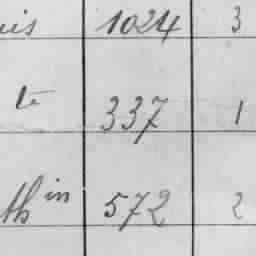 is 1024 3
te 337 1
th in 572 2